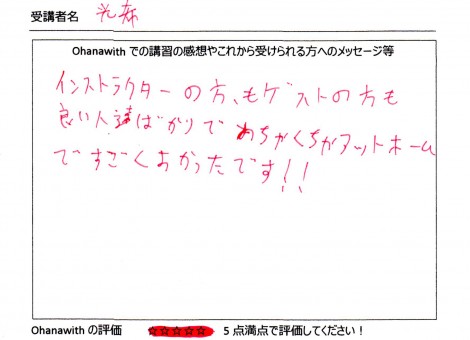 受講者名
Ohanawith での講習の感想やこれから受けられる方へのメッセージ等
インストラクターの方、もゲストの方も
良い人達ばかりで めちゃくちゃアットホーム
ですごくよかったです!!
Ohanawith の評価 ☆☆☆☆☆ 5点満点で評価してください！